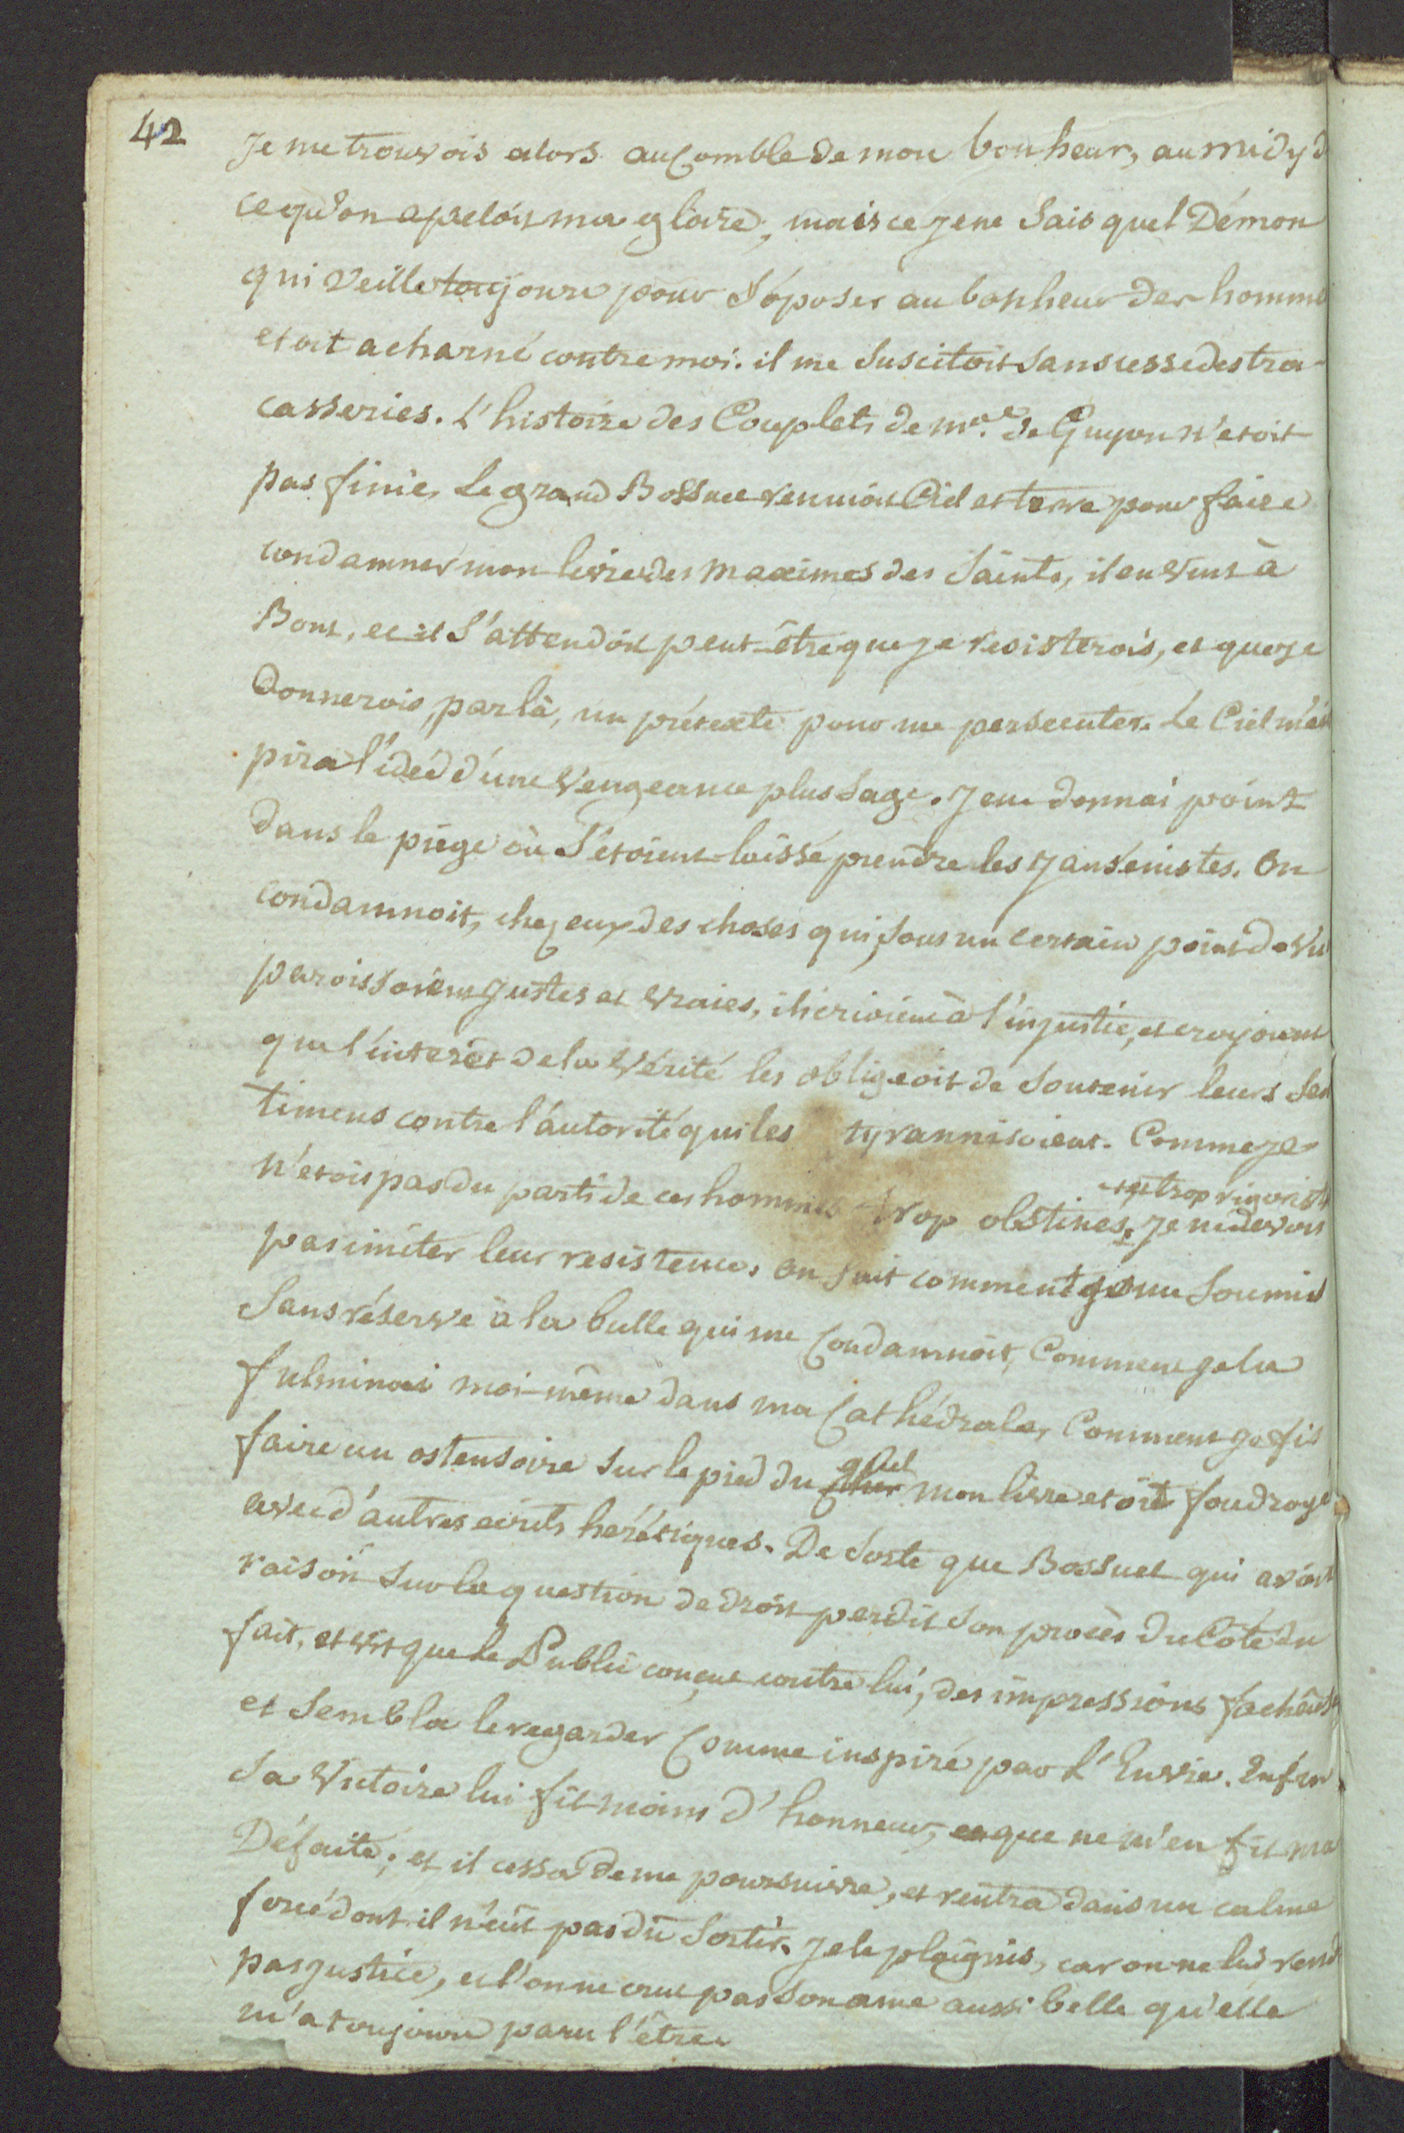 42
Je me trouvois alors au Comble de mon bonheur, au midy d
ce qu'on apeloit ma gloire, mais ce je ne Sais quel Démon
qui Veille toujours pour S'oposer au bonheur des homme
etoit acharné contre moi. il me Suscitoit Sans cesse des tra-
casseries. L'histoire des Couplets de Me. de Guyon n'etoit
pas finie. Le grand Bossuet remuoit Ciel et terre pour faire
condamner mon livre des Maximes des Saints, il en vint à
Bout, et il S'attendoit peut-être que je resisterois, et que je
Donnerois, par là, un prétexte pour me persecuter. Le Ciel m'ins
pira l'idée d'une Vengeance plus Sage. Je ne donnai point
dans le piege où S'etoient laissé prendre les Jansénistes. On
condamnoit, chez eux, des choses qui, Sous un certain point de Vu
paroissoient Justes et Vraies, ils crioient à l'injustice, et croyoient
que l'interêt de la Vérité les obligeoit de Soutenir leurs Sen
timens contre l'autorité qui les tyrannisoient. Comme je
n'etois pas du parti de ces hommes trop obstinés, et trop rigoriste je ne devois
pas imiter leur resistence. On Sait comment je me Soumis
Sans réserve à la bulle qui me Condamnoit, Comment je la
fulminai moi-même dans ma Cathédrale, Comment je fis
faire un ostensoire Sur le pied du quel mon livre etoit foudroyé
avec d'autres ecrits herétiques. De Sorte que Bossuet qui avoit
raison Sur la question de droit perdit Son procès du Côté du
fait, et vit que le Public conçut contre lui, des impressions facheuse
et Sembla le regarder Comme inspiré par l'Envie. Enfin
Sa Victoire lui fit moins d'honneur, que ne m'en fit ma
Défaite; et il cessa de me poursuivre, et rentra dans un calme
forcé dont il n'eût pas dû Sortir. Je le plaignis, car on ne lui rend
pas justice, et l'on ne crut pas Son ame aussi belle qu'elle
m'a toujours paru l'être